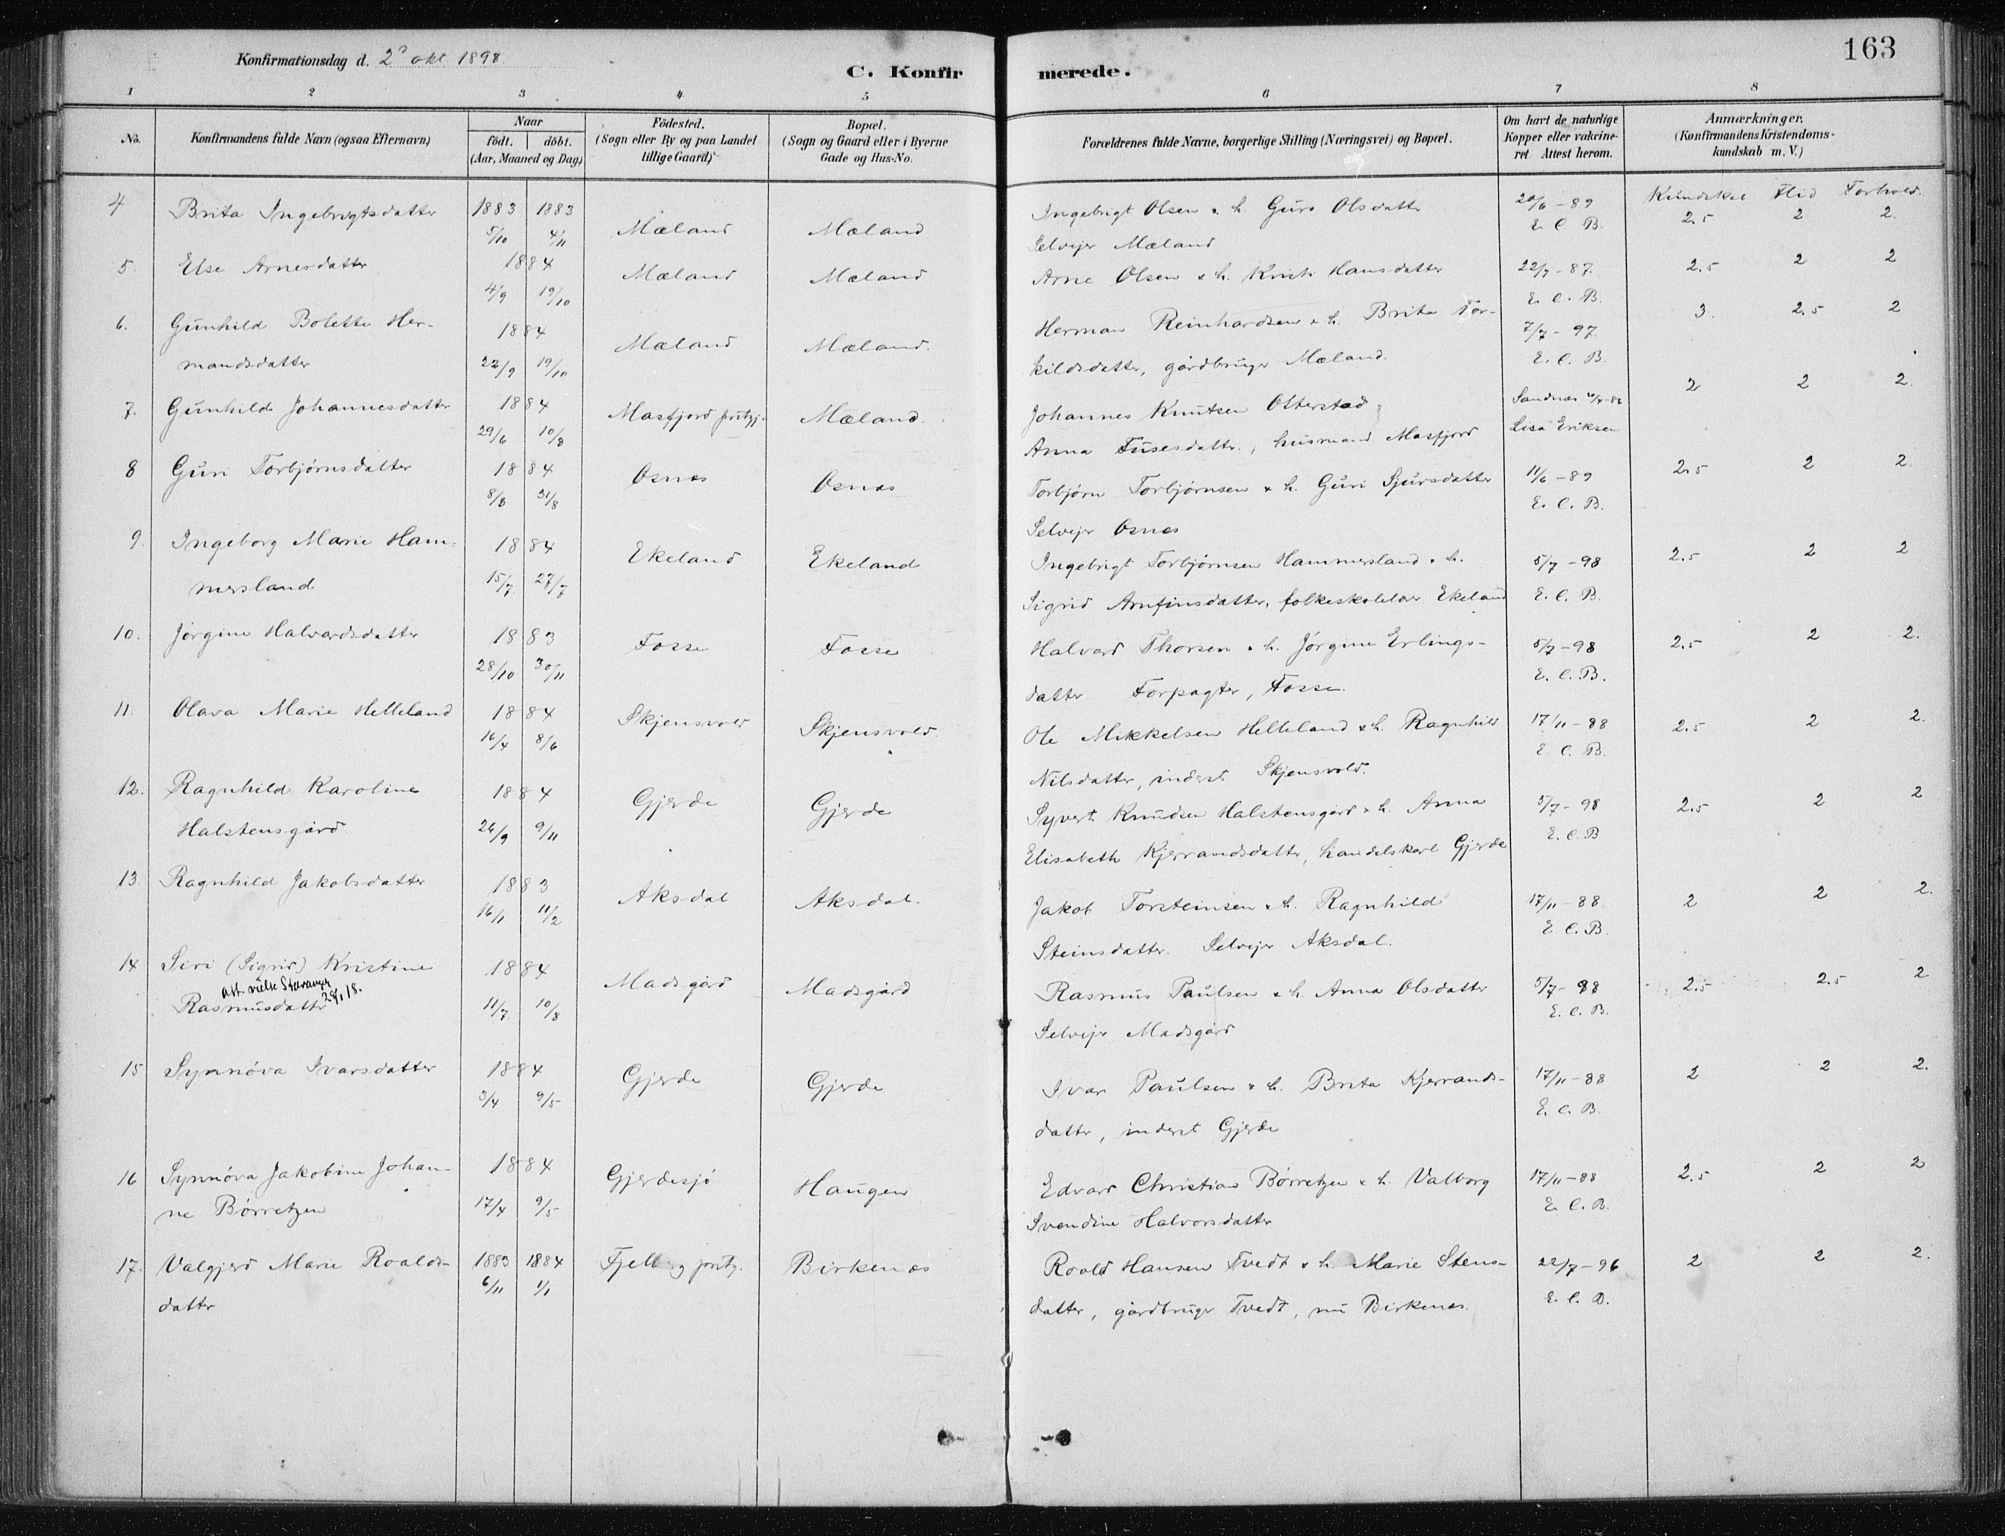 163
Konfirmationsdag d. 2 okt 1898
C. Konfirmerede.
1 2 3 4 5 6 7 8
No.
Konfirmandens fulde Navn (ogsaa Efternavn)
Naar
födt. döbt.
(Aar, Maaned og Dag)
Födested.
(Sogn eller By og paa Landet
tillige Gaard)
Bopæl.
(Sogn og Gaard eller i Byerne
Gade og Hus-No.
Forældrenes fulde Navne, borgerlige Stilling (Næringsvei) og Bopæl.
Om havt de naturlige
Kopper eller vaccine-
ret Attest herom.
Anmærkninger,
(Konfirmandens Kristendoms-
kundskab m. V.)
Kundskab Flid Forhold.
4 Brita Ingebrigtsdatter 1883 1883 Mæland Mæland Ingebrigt Olsen o. h. Guro Olsdatter 20/6-89 2.5 2 2.
5/10 4/11 Selvejer Mæland E. C. B.
5 Else Arnesdatter 1884 Mæland Mæland Arne Olsen o. h. Kristi Hansdatter 22/7-87. 2.5 2 2
4/9 19/10 E. C. B.
6. Gunhild Bolette Her- 1884 Mæland Mæland. Herman Reinhardsen o. h. Brita Tor- 7/7-97. 3. 2.5 2
mandsdatter 22/9 19/10 kildsdatter, gårdbruger Mæland. E. C. B.
7. Gunhild Johannesdatter 1884 Masfjord prstgj. Mæland. Johannes Knutsen Otterstad, Sandnæs 2 2 2.
29/6 10/8 Anna Fusesdatter, husmand Masfjord Lisa Eriksen
8 Guri Torbjørnsdatter 1884. Osnes Osnes Torbjørn Torbjørnsen o. h. Guri Sjursdatter 11/6-89 2.5 2 2.
8/8 31/8 Selvejer Osnes E. C. B.
9. Ingeborg Marie Ham- 1884 Ekeland Ekeland Ingebrigt Torbjørnsen Hammersland o. h. 5/7-98 2.5 2 2
mersland 15/7 27/7 Sigrid Arnfinsdatter, folkeskolelær Ekeland E. C. B.
10. Jørgine Halvardsdatter 1883 Fosse Fosse Halvard Thorsen o. h. Jørgine Erlings- 5/7-98 2.5 2 2.
28/10 30/11 datter. Forpagter, Fosse. E. C. B.
11. Olava Marie Helleland 1884 Skjensvold Skjensvold. Ole Mikkelsen Helleland o. h. Ragnhild 17/11-88 2.5 2 2.
16/4 8/6 Nilsdatter, inderst Skjensvold. E. C. B.
12. Ragnhild Karoline 1884 Gjerde Gjerde Syvert Knudsen Halstensgård o. h. Anna 5/7-98 2.5 2 2
Halstensgård 26/9 9/11 Elisabeth Kjerrandsdatter, handelskarl Gjerde E. C. B
13. Ragnhild Jakobsdatter 1883 Aksdal Aksdal. Jakob Torsteinsen o. h. Ragnhild 17/11-88. 2 2 2.
16/1 11/2 Steinsdatter. Selvejer Aksdal. E. C. B.
14 Siri (Sigrid) Kristine 1884 Madsgård Madsgård Rasmus Paulsen o. h. Anna Olsdatter 5/7-98 2.5 2.5 2
att. vielse Stavanger 18.
Rasmusdatter 11/7 10/8 Selvejer Madsgård E. C. B.
15 Synnøva Ivarsdatter 1884 Gjerde Gjerde Ivar Paulsen o. h. Brita Kjerrands- 17/11-88 2 2 2.
3/4 9/5 datter, inderst Gjerde E. C. B.
16 Synnøva Jakobine Johan- 1884 Gjerdesjö Haugen Edvard Christian Børretzen o. h. Valborg 17/11-88 2.5 2 2
ne Børretzen 17/4 9/5 Svendine Halvorsdatter E. C. B.
17. Valgjerd Marie Roalds- 1883 1884 Fjelberg prstg. Birkenes Roald Hansen Tvedt o. h. Marie Stens- 22/7-96 2 2 2.
datter 6/11 1/1 datter, gårdbruger Tvedt, nu Birkenes. E. C. B.